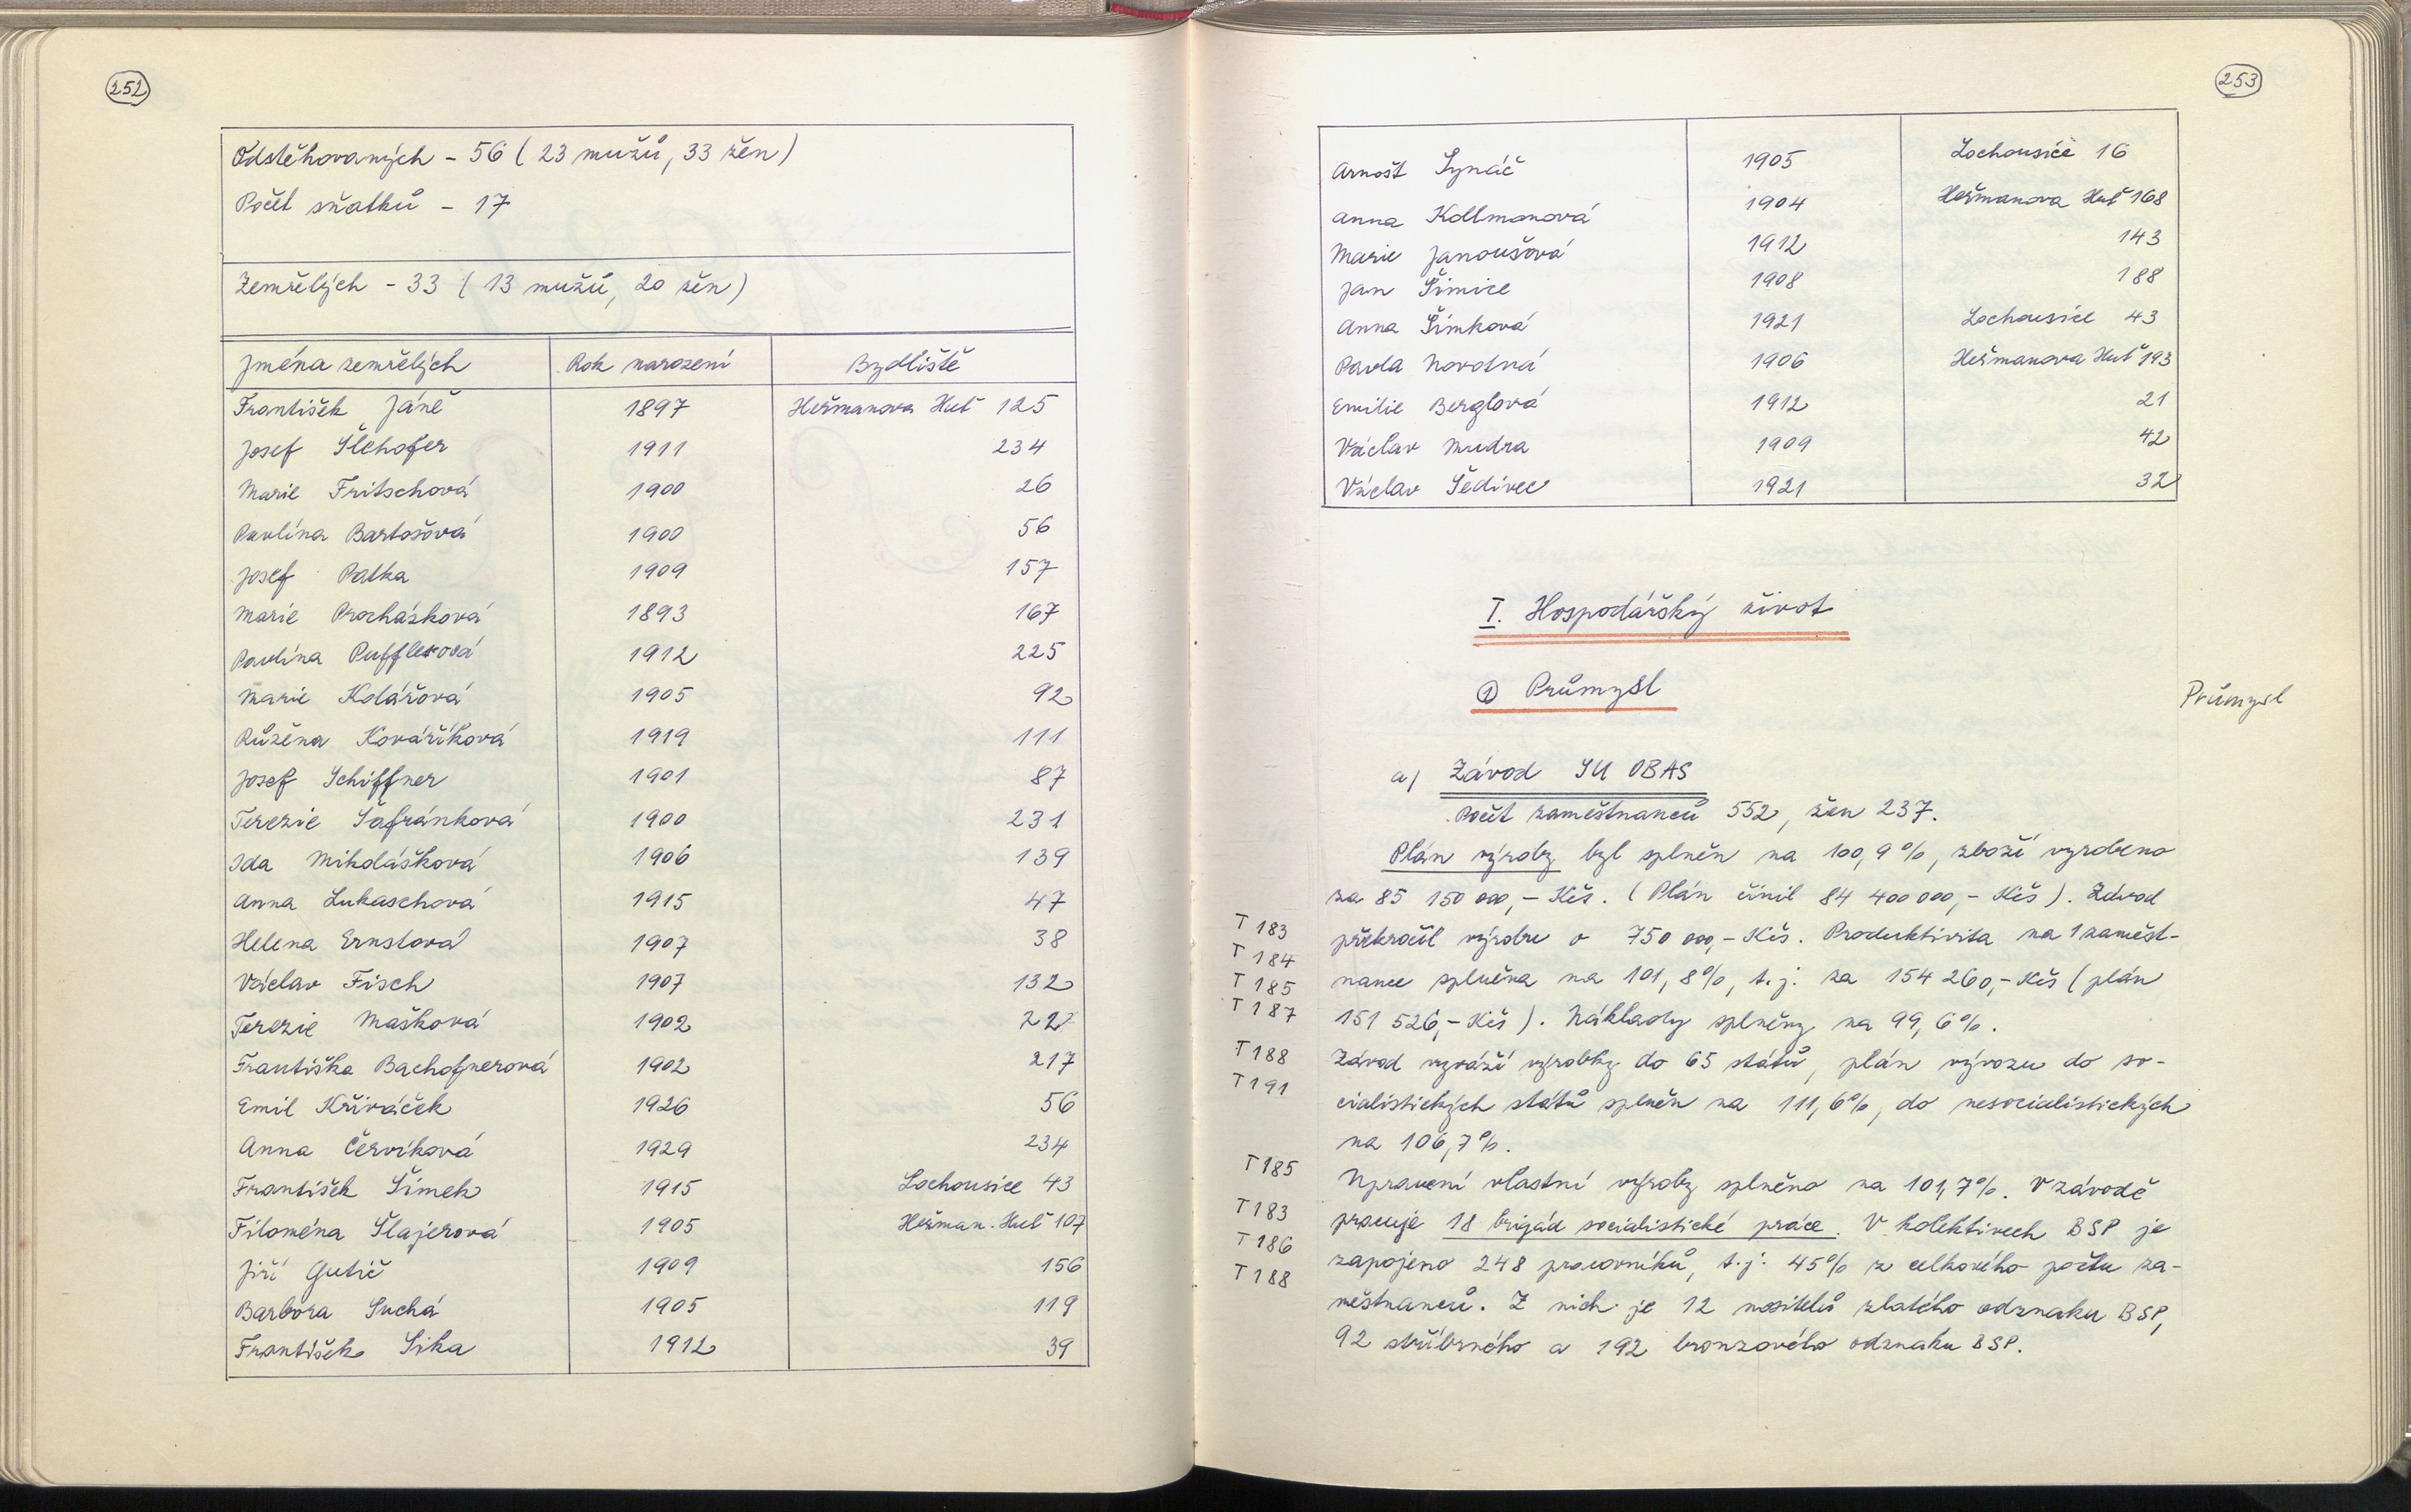 252
Odstěhovaných - 56 ( 23 mužů, 33 žen )
Počet sňatků - 17
Zemřelých - 33 ( 13 mužů, 20 žen )
Jména zemřelých Rok narození Bydliště
František Jáně 1897 Heřmanova Huť 125
Josef Šlehofer 1911 234
Marie Fritschová 1900 26
Pavlína Bartošová 1900 56
Josef Patka 1909 157
Marie Procházková 1893 167
Pavlína Pufflerová 1912 225
Marie Kolářová 1905 92
Růžena Kováříková 1919 111
Josef Schiffner 1901 87
Terezie Šafránková 1900 231
Ida Mikolášková 1906 139
Anna Lukaschová 1915 47
Helena Ernstová 1907 38
Václav Fisch 1907 132
Terezie Mašková 1902 222
Františka Bachofnerová 1902 217
Emil Křiváček 1926 56
Anna Červíková 1929 234
František Šimek 1915 Lochousice 43
Filoména Šlajerová 1905 Heřman. Huť 107
Jiří Gutič 1909 156
Barbora Suchá 1905 119
František Sika 1912 39
253
Arnošt Synáč 1905 Lochousice 16
Anna Kollmanová 1904 Heřmanova Huť 168
Marie Janoušová 1912 143
Jan Šimice 1908 188
Anna Šimková 1921 Lochousice 43
Pavla Novotná 1906 Heřmanova Huť 193
Emilie Berglová 1912 21
Václav Mudra 1909 42
Václav Šedivec 1921 32
I. Hospodářský život
1 Průmysl
Průmysl
a) Závod SU OBAS
Počet zaměstnanců 552, žen 237.
Plán výroby byl splněn na 100,9%, zboží vyrobeno
za 85 150 000,- Kčs. ( Plán činil 84 400 000,- Kčs ). Závod
T 183 překročil výrobu o 750 000,- Kčs. Produktivita na 1 zaměst-
T 184
T 185 nance splněna na 101,8%, t.j. za 154 260,- Kčs ( plán
T 187 151 526,- Kčs ). Náklady splněny na 99,6%.
T 188 Závod vyváží výrobky do 65 států, plán vývozu do so-
T 191 cialistických států splněn na 111,6%, do nesocialistických
na 106,7%.
T 185 Upravení vlastní výroby splněno na 101,7%. V závodě
T 183 pracuje 18 brigád socialistické práce. V kolektivech BSP je
T 186 zapojeno 248 pracovníků, t.j. 45% z celkového počtu za-
T 188 městnanců. Z nich je 12 nositelů zlatého odznaku BSP,
92 stříbrného a 192 bronzového odznaku BSP.